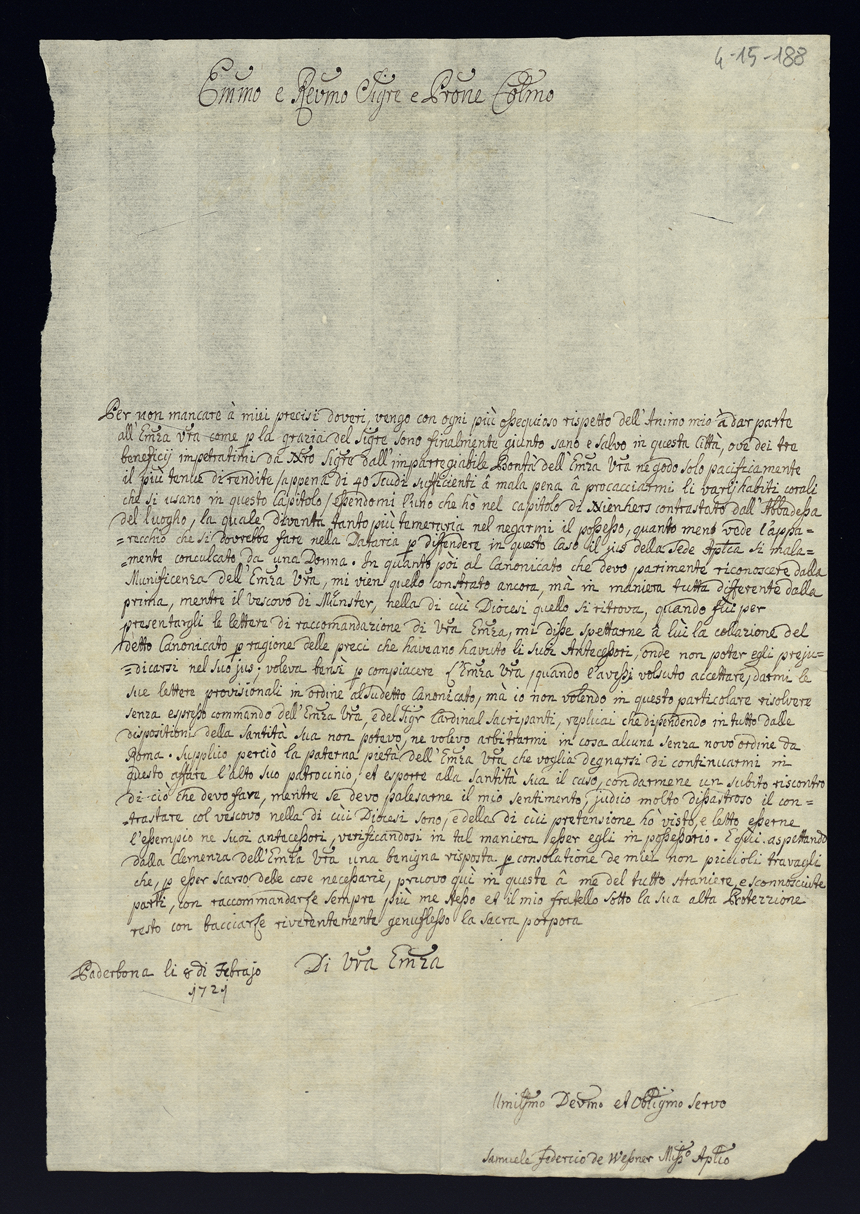 4-15-188
Emmo e Revmo Sigre e Prone Colmo
Per non mancare à miei precisi doveri, vengo con ogni più ossequioso rispetto dell'Animo mio à dar parte
all'Emza Vra come p la grazia del Sigre sono finalmente giunto sano e salvo in questa Città, ove dei tre
beneficij impetratimi da Nro Sigre dall'impareggiabile Bontà dell'Emza Vra ne godo solo pacificamente
il più tenue di rendite /appena di 40 Scudi sufficienti â mala pena â procacciarmi li varij habiti corali
che si usano in questo Capitolo/ essendomi l'uno che hò nel capitolo di Nienhers contrastato dall'Abbadessa
del luogho, la quale diventa tanto più temeraria nel negarmi il possesso, quanto meno vede l'appa-
=recchio che si dovrebbe fare nella Dataria p diffendere in questo Caso il jus della Sede Aptca si mala=
=mente conculcato da una Donna. In quanto pòi al Canonicato che devo parimente riconoscere dalla
Munificenza dell'Emza Vra, mi vien quello constrato ancora, mà in maniera tutta differente dalla
prima, mentre il vescovo di Münster, nella di cùi Diocesi quello si ritrova, quando fùi per
presentargli le lettere di raccomandazione di Vra Emza, mi disse spettarne à lui la collazione del
detto Canonicato p ragione delle preci che haveano havuto li suoi Antecessori, onde non poter egli preju=
=dicarsi nel suo jus; voleva bensì p compiacere l'Emza Vra, quando l'avessi volsuto accettare, darmi le
sue lettere provisionali in ordine al sudetto Canonicato, mà io non volendo in questo particolare risolvere
senza espresso commando dell'Emza Vra, e del Sigr Cardinal Sacripanti, replicai che dipendendo in tutto dalle
dispositioni della Santità Sua non potevo, ne volevo arbitrarmi in cosa alcuna senza novo ordine da
Roma. Supplico perciò la paterna pietà dell'Emza Vra che voglia degnarsi di continuarmi in
questo affare l'alto suo patrocinio, et esporre alla Santità Sua il caso, con darmene un subito riscontro
di ciò che devo fare, mentre se devo palesarne il mio sentimento, judico molto disastroso il con=
=trastare col vescovo nella di cùi Diocesi sono, e della di cùi pretensione hò visto, e letto esserne
l'essempio ne suoi antecessori, verificandosi in tal maniera esser egli in possessorio. E qui aspettando
dalla clemenza dell'Emza Vra una benigna risposta p consolatione de miei non piccioli travagli
che, p esser scarso delle cose necessarie, pruovo quì in queste â me del tutto straniere, e sconnosciute
parti, con raccommandarle sempre più me stesso et il mio fratello sotto la sua alta Protezzione
resto con bacciarle riverentemente genuflesso la sacra porpora
Paderbona li 8 di Febrajo Di Vra Emza
1721
Umilissmo Devmo et Obligmo Servo
Samuele Foderico de Wessner Misso Aplico